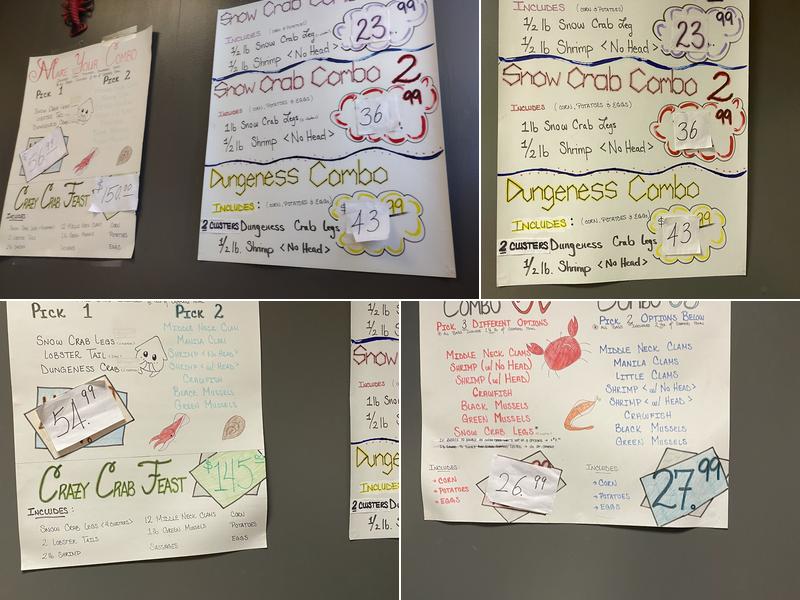 Make Your Combo
Pick 1
Pick 2
Snow Crab Legs
Lobster Tail
Dungeness Crab
56.99
Crazy Crab Feast
$150.00
Includes:
Corn
Potatoes
Eggs
Snow Crab Combo
Includes (Corn & Potatoes)
1/2 lb Snow Crab Leg
1/2 lb Shrimp <No Head>
23.99
Snow Crab Combo 2
Includes (Corn, Potatoes & Eggs)
1 lb Snow Crab Legs
1/2 lb Shrimp <No Head>
36.99
Dungeness Combo
Includes: (Corn, Potatoes & Eggs)
2 Clusters Dungeness Crab Legs
1/2 lb. Shrimp <No Head>
$43.99
(Corn & Potatoes)
Includes
1/2 lb Snow Crab Leg
1/2 lb Shrimp <No Head>
23.99
Snow Crab Combo 2
Includes (Corn, Potatoes & Eggs)
1 lb Snow Crab Legs
1/2 lb Shrimp <No Head>
36.99
Dungeness Combo
Includes: (Corn, Potatoes & Eggs)
2 Clusters Dungeness Crab Legs
1/2 lb. Shrimp <No Head>
$43.99
Pick 1
Pick 2
Snow Crab Legs
Lobster Tail
Dungeness Crab
Middle Neck Clam
Manila Clam
Shrimp <No Head>
Shrimp <w/ Head>
Crawfish
Black Mussels
Green Mussels
54.99
Crazy Crab Feast
$145
Includes:
Snow Crab Legs (4 Clusters)
2 Lobster Tails
2 lb Shrimp
12 Middle Neck Clams
1 lb Green Mussels
Sausages
Corn
Potatoes
Eggs
1/2 lb
1/2 lb
Snow
Includes
1 lb
1/2 lb
Dunge
Includes
2 Clusters D
1/2 lb. S
Combo
Pick 3 Different Options
Middle Neck Clams
Shrimp (w/ No Head)
Shrimp (w/ Head)
Crawfish
Black Mussels
Green Mussels
Snow Crab Legs*
Includes:
→ Corn
→ Potatoes
→ Eggs
26.99
Combo
Pick 2 Options Below
Middle Neck Clams
Manila Clams
Little Clams
Shrimp <w/ No Head>
Shrimp <w/ Head>
Crawfish
Black Mussels
Green Mussels
Includes:
→ Corn
→ Potatoes
→ Eggs
27.99